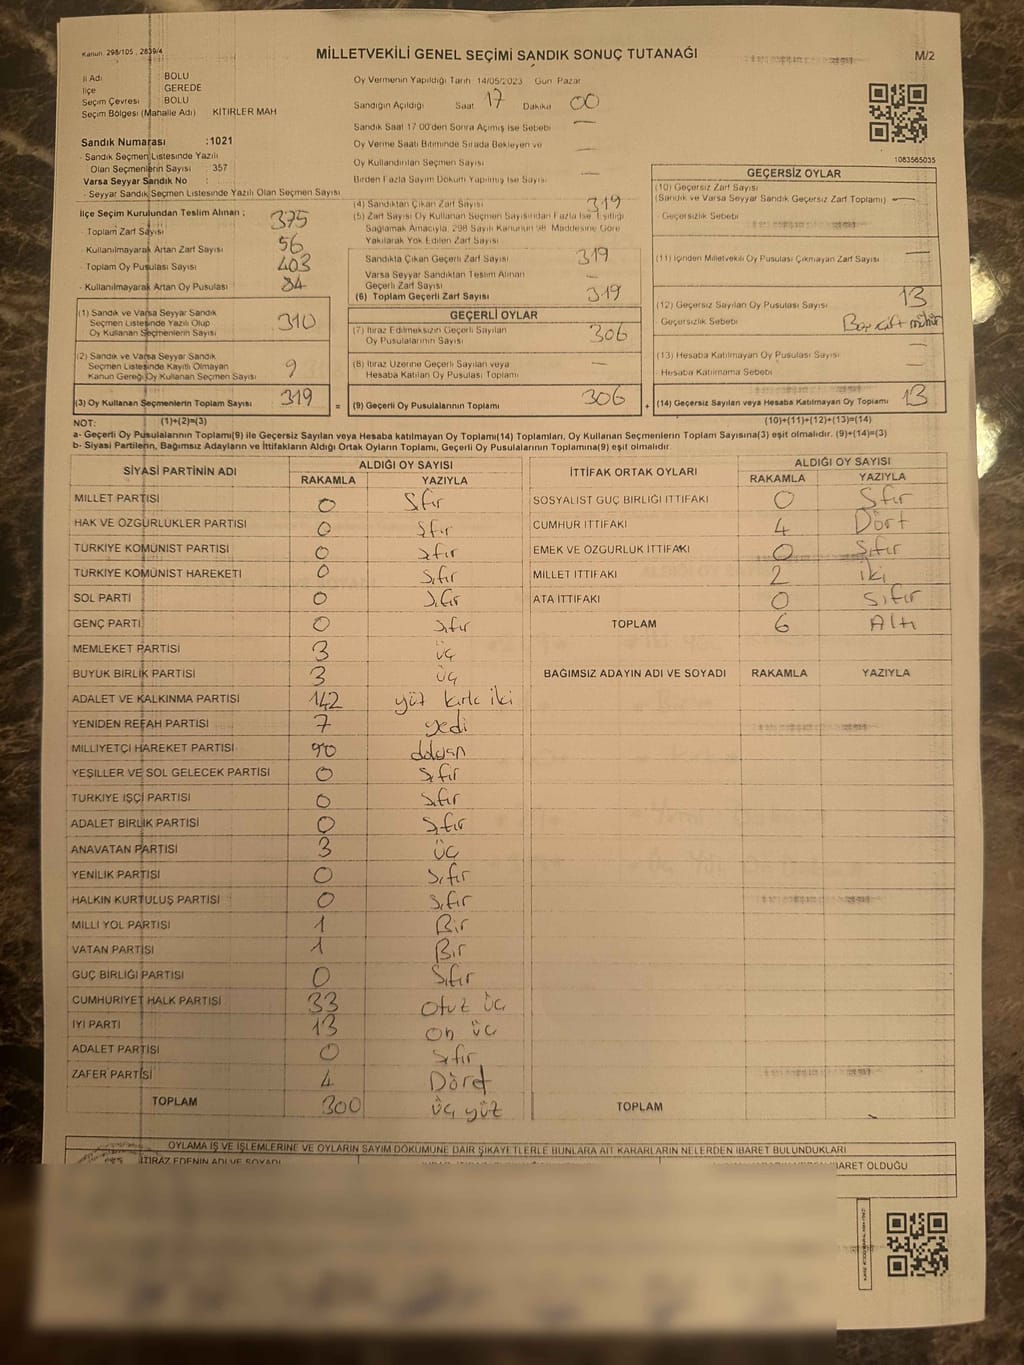 Kanun: 298/105, 2839/4
MİLLETVEKİLİ GENEL SEÇİMİ SANDIK SONUÇ TUTANAĞI
M/2
İl Adı BOLU
İlçe GEREDE
Seçim Çevresi BOLU
Seçim Bölgesi (Mahalle Adı) KİTİRLER MAH
Sandık Numarası :1021
- Sandık Seçmen Listesinde Yazılı
Olan Seçmenlerin Sayısı : 357
Varsa Seyyar Sandık No :
- Seyyar Sandık Seçmen Listesinde Yazılı Olan Seçmen Sayısı
Oy Vermenin Yapıldığı Tarih 14/05/2023 Gün Pazar
Sandığın Açıldığı Saat 17 Dakika 00
Sandık Saat 17:00'den Sonra Açılmış İse Sebebi —
Oy Verme Saati Bitiminde Sırada Bekleyen ve
Oy Kullandırılan Seçmen Sayısı —
Birden Fazla Sayım Dökümü Yapılmış İse Sayısı —
1083565035
İlçe Seçim Kurulundan Teslim Alınan ;
- Toplam Zarf Sayısı 375
- Kullanılmayarak Artan Zarf Sayısı 56
- Toplam Oy Pusulası Sayısı 403
- Kullanılmayarak Artan Oy Pusulası 84
(1) Sandık ve Varsa Seyyar Sandık
Seçmen Listesinde Yazılı Olup
Oy Kullanan Seçmenlerin Sayısı 310
(2) Sandık ve Varsa Seyyar Sandık
Seçmen Listesinde Kayıtlı Olmayan
Kanun Gereği Oy Kullanan Seçmen Sayısı 9
(3) Oy Kullanan Seçmenlerin Toplam Sayısı 319 =
(4) Sandıktan Çıkan Zarf Sayısı 319
(5) Zarf Sayısı Oy Kullanan Seçmen Sayısından Fazla İse Eşitliği
Sağlamak Amacıyla, 298 Sayılı Kanunun 98. Maddesine Göre
Yakılarak Yok Edilen Zarf Sayısı
Sandıkta Çıkan Geçerli Zarf Sayısı 319
Varsa Seyyar Sandıktan Teslim Alınan
Geçerli Zarf Sayısı —
(6) Toplam Geçerli Zarf Sayısı 319
GEÇERLİ OYLAR
(7) İtiraz Edilmeksizin Geçerli Sayılan
Oy Pusulalarının Sayısı 306
(8) İtiraz Üzerine Geçerli Sayılan veya
Hesaba Katılan Oy Pusulası Toplamı —
(9) Geçerli Oy Pusulalarının Toplamı 306 +
GEÇERSİZ OYLAR
(10) Geçersiz Zarf Sayısı
(Sandık ve Varsa Seyyar Sandık Geçersiz Zarf Toplamı) —
- Geçersizlik Sebebi
(11) İçinden Milletvekili Oy Pusulası Çıkmayan Zarf Sayısı —
(12) Geçersiz Sayılan Oy Pusulası Sayısı 13
Geçersizlik Sebebi Boş çift mühür
(13) Hesaba Katılmayan Oy Pusulası Sayısı —
- Hesaba Katılmama Sebebi —
(14) Geçersiz Sayılan veya Hesaba Katılmayan Oy Toplamı 13
NOT: (1)+(2)=(3) (10)+(11)+(12)+(13)=(14)
a- Geçerli Oy Pusulalarının Toplamı(9) ile Geçersiz Sayılan veya Hesaba katılmayan Oy Toplamı(14) Toplamları, Oy Kullanan Seçmenlerin Toplam Sayısına(3) eşit olmalıdır. (9)+(14)=(3)
b- Siyasi Partilerin, Bağımsız Adayların ve İttifakların Aldığı Ortak Oyların Toplamı, Geçerli Oy Pusulalarının Toplamına(9) eşit olmalıdır.
SİYASİ PARTİNİN ADI ALDIĞI OY SAYISI
RAKAMLA YAZIYLA
MİLLET PARTİSİ 0 Sıfır
HAK VE ÖZGÜRLÜKLER PARTİSİ 0 Sıfır
TÜRKİYE KOMÜNİST PARTİSİ 0 Sıfır
TÜRKİYE KOMÜNİST HAREKETİ 0 Sıfır
SOL PARTİ 0 Sıfır
GENÇ PARTİ 0 Sıfır
MEMLEKET PARTİSİ 3 üç
BÜYÜK BİRLİK PARTİSİ 3 üç
ADALET VE KALKINMA PARTİSİ 142 yüz kırk iki
YENİDEN REFAH PARTİSİ 7 yedi
MİLLİYETÇİ HAREKET PARTİSİ 90 doksan
YEŞİLLER VE SOL GELECEK PARTİSİ 0 Sıfır
TÜRKİYE İŞÇİ PARTİSİ 0 Sıfır
ADALET BİRLİK PARTİSİ 0 Sıfır
ANAVATAN PARTİSİ 3 üç
YENİLİK PARTİSİ 0 Sıfır
HALKIN KURTULUŞ PARTİSİ 0 Sıfır
MİLLİ YOL PARTİSİ 1 Bir
VATAN PARTİSİ 1 Bir
GÜÇ BİRLİĞİ PARTİSİ 0 Sıfır
CUMHURİYET HALK PARTİSİ 33 Otuz üç
İYİ PARTİ 13 On üç
ADALET PARTİSİ 0 Sıfır
ZAFER PARTİSİ 4 Dört
TOPLAM 300 üç yüz
İTTİFAK ORTAK OYLARI ALDIĞI OY SAYISI
RAKAMLA YAZIYLA
SOSYALİST GÜÇ BİRLİĞİ İTTİFAKI 0 Sıfır
CUMHUR İTTİFAKI 4 Dört
EMEK VE ÖZGÜRLÜK İTTİFAKI 0 Sıfır
MİLLET İTTİFAKI 2 iki
ATA İTTİFAKI 0 Sıfır
TOPLAM 6 Altı
BAĞIMSIZ ADAYIN ADI VE SOYADI RAKAMLA YAZIYLA
TOPLAM
OYLAMA İŞ VE İŞLEMLERİNE VE OYLARIN SAYIM DÖKÜMÜNE DAİR ŞİKAYETLERLE BUNLARA AİT KARARLARIN NELERDEN İBARET BULUNDUKLARI
İTİRAZ EDENİN ADI VE SOYADI
İBARET OLDUĞU